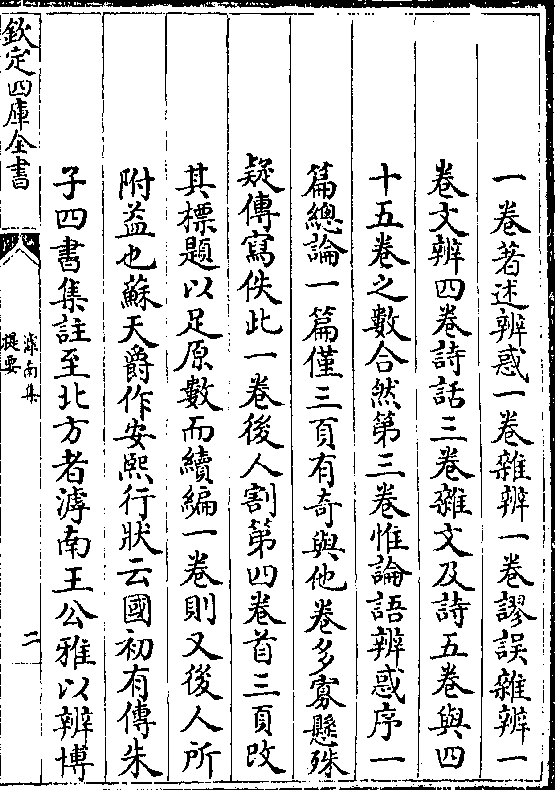 一卷著述辨惑一卷雜辨一卷謬誤雜辨一
卷文辨四卷詩話三卷雜文及詩五卷與四
十五卷之數合然第三卷惟論語辨惑序一
篇總論一篇僅三頁有奇與他卷多寡懸殊
疑傳寫佚此一卷後人割第四卷首三頁改
其標題以足原數而續編一卷則又後人所
附益也蘇天爵作安熙行狀云國初有傳朱
子四書集註至北方者滹南王公雅以辨博
欽定四庫全書
滹南集
提要
二